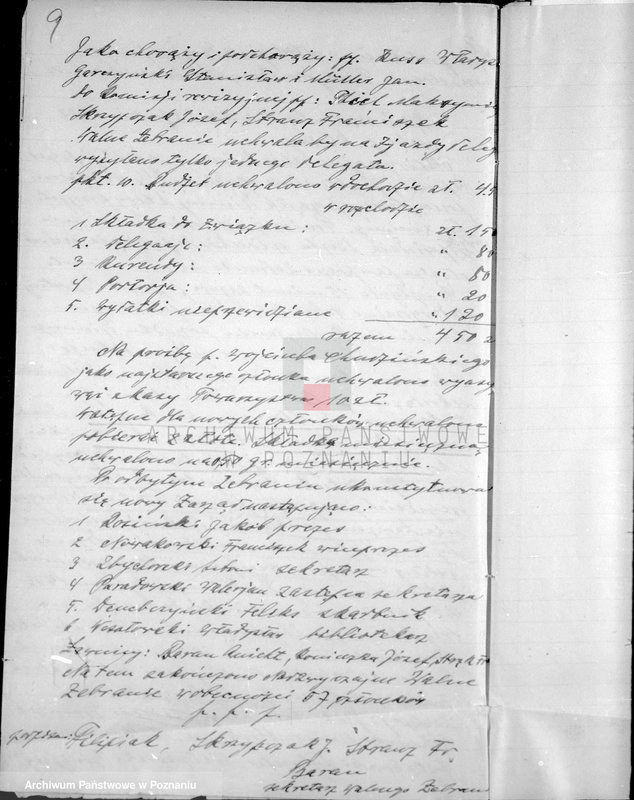 9
Jako chorąży i podchorąży: pp. Kuss Włady
Garczyński Stanisław i Müller Jan.
do Komisji rewizyjnej pp: Maksymi
Skrzypczak Józef, Stranz Franciszek
Walne Zebranie uchwala by na Zjazdy deleg
wysyłano tylko jednego delegata.
pkt. 10. Budżet uchwalono w dochodzie zł. 45
w rozchodzie
1 Składka do Związku: zł. 150
2. Delegacje: " 80
3 Kurendy: " 80
4 Portorja: " 20
5. Wydatki nieprzewidziane " 120
razem 450 z
Na prośbę p. Wojciecha Chudzińskiego
jako najstarszego członka uchwalono
z kasy Towarzystwa 10 zł.
dla nowych członków uchwalono
Składkę
uchwalono na 0,50 gr. miesięcznie.
Po odbytym Zebraniu ukonstytuował
się nowy Zarząd następująco:
1 Rosiński Jakób prezes
2 Nowakowski Franciszek wiceprezes
3 Zbychorski sekretarz
4 Paradowski Walerjan zastępca sekretarza
5. Dembczyński Feliks skarbnik
6 Wesołowski Władysław bibliotekarz
Ławnicy: Baran, Konieczka Józef,
Na tem zakończono Nadzwyczajne Walne
Zebranie w obecności 57 członków
p. p. p.
podpisani: Filipiak, Skrzypczak J. Stranz Fr.
Baran
sekretarz walnego Zebran
ARCHIWUM PAŃSTWOWE
W POZNANIU
Archiwum Państwowe w Poznaniu